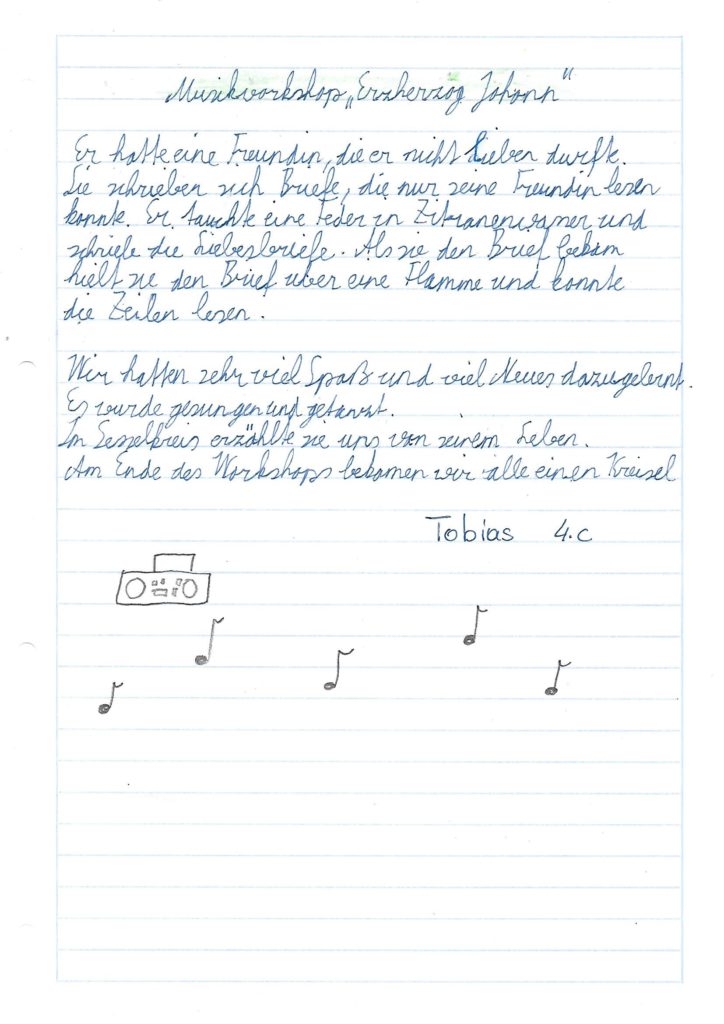 Musikworkshop „Erzherzog Johann"
Er hatte eine Freundin, die er nicht Lieben durfte.
Sie schrieben sich Briefe, die nur seine Freundin lesen
konnte. Er tauchte eine Feder in Zitronenwasser und
schriefe die Liebesbriefe. Als sie den Brief bekam
hielt sie den Brief über eine Flamme und konnte
die Zeilen lesen.
Wir hatten sehr viel Spaß und viel Neues dazugelernt.
Es wurde gesungen und getanzt.
Im Sesselkreis erzählte sie uns von seinem Leben.
Am Ende des Workshops bekamen wir alle einen Kreisel
Tobias 4.c